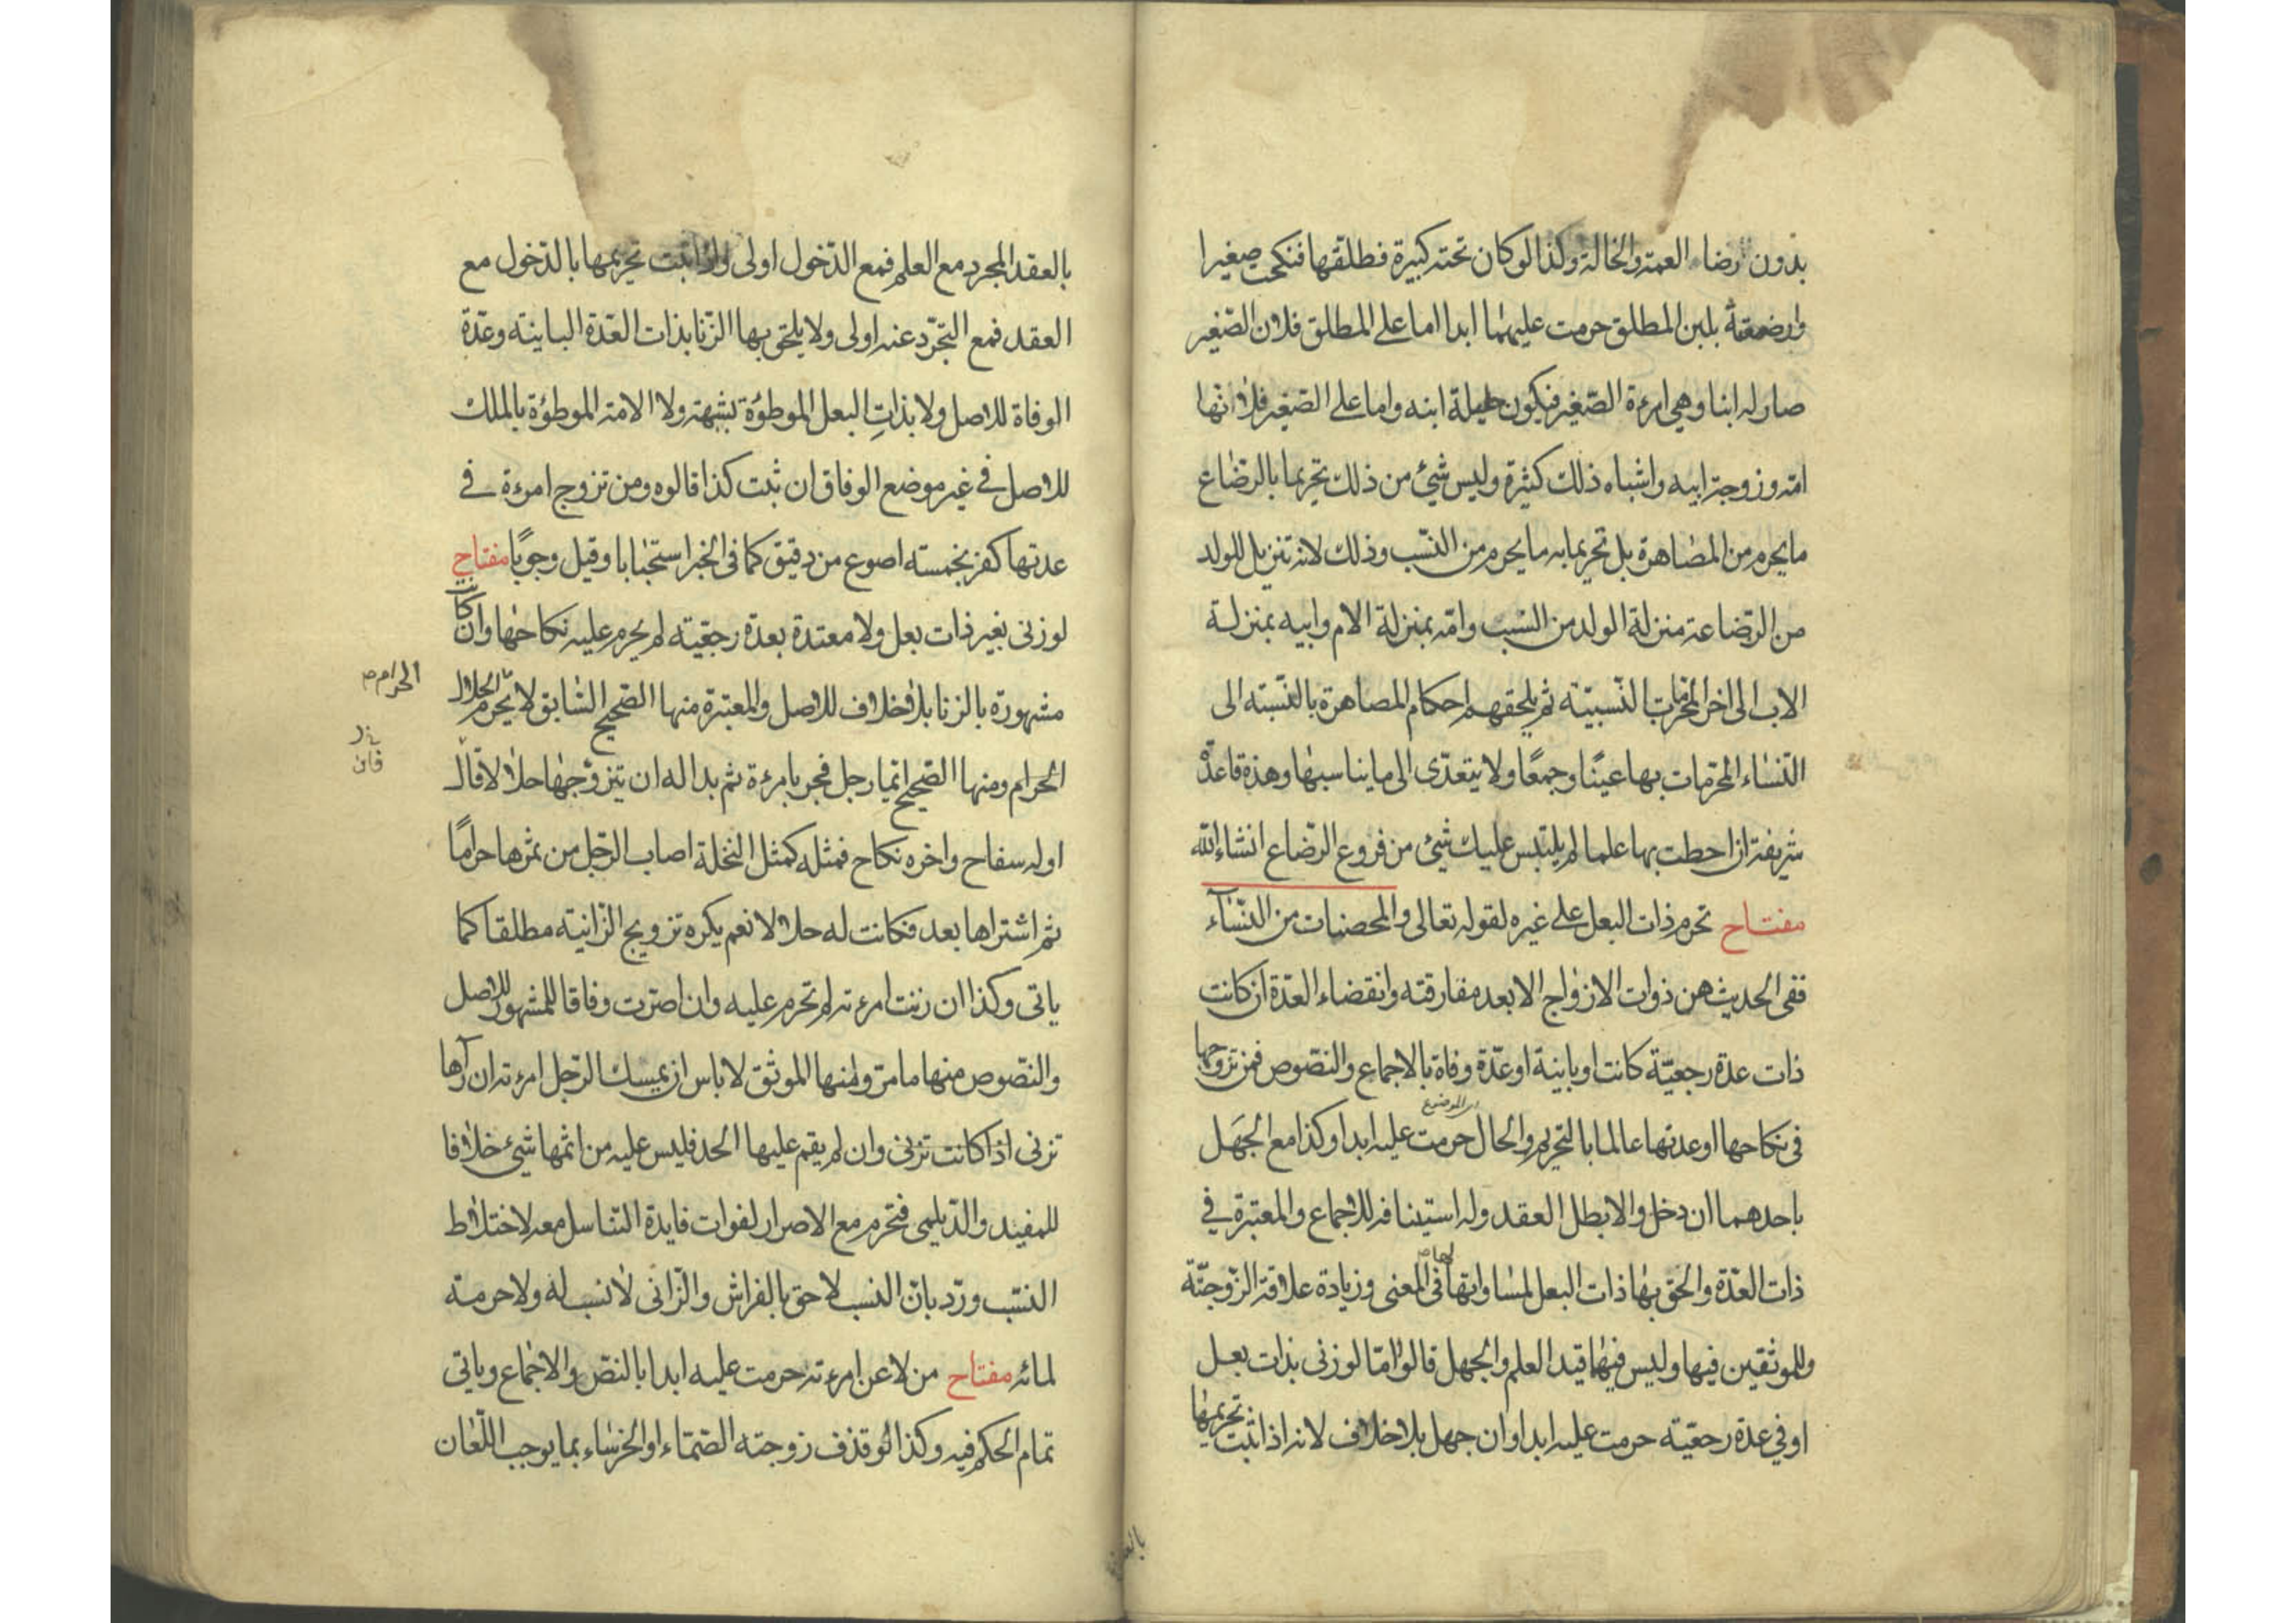 بدون رضاء العمة والخالة وكذا لو كان تحته كبيرة فطلقها فنكحت صغيرا
وارضعته بلبن المطلق حرمت عليهما ابدا اما على المطلق فلان الصغير
صار له ابنا وهي امرءة الصغير فيكون حليلة ابنه واما على الصغير فلانها
امه وزوجة ابيه واشباه ذلك كثيرة وليس شئ من ذلك تحريما بالرضاع
ما يحرم من المصاهرة بل تحريما به ما يحرم من النسب وذلك لانه تنزيل للولد
من الرضاعة منزلة الولد من النسب وامه بمنزلة الام وابيه بمنزلة
الاب الى اخر المحرمات النسبية ثم يلحقهم احكام المصاهرة بالنسبة الى
النساء المحرمات بها عينًا وجمعًا ولا يتعدى الى ما يناسبها وهذه قاعدة
شريفة اذا حطت بها علما لم يلتبس عليك شئ من فروع الرضاع انشاء الله
مفتاح تحرم ذات البعل على غيره لقوله تعالى والمحصنات من النساء
ففى الحديث هن ذوات الازواج الا بعد مفارقته وانقضاء العدة ان كانت
ذات عدة رجعية كانت او باينة او عدة وفاة بالاجماع والنصوص فمن تزوجها
فى نكاحها او عدتها عالما بالتحريم والحال حرمت عليه ابدا وكذا مع الجهل
باحدهما ان دخل والا بطل العقد وله استينافه للاجماع والمعتبرة في
ذات العدة والحق بها ذات البعل لمساواتها لها فى المعنى وزيادة علاقة الزوجية
وللموثقين فيها وليس فيها قيد العلم والجهل قالوا امّا لو زنى بذات بعل
او في عدة رجعية حرمت عليه ابدا وان جهل بلا خلاف لانه اذا ثبت تحريمها
بالعقد المجرد مع العلم فمع الدخول اولى واذا ثبت تحريمها بالدخول مع
العقد فمع التجرّد عنه اولى ولا يلحق بها الزنا بذات العدة الباينة وعدة
الوفاة للاصل ولا بذات البعل الموطوءة بشبهة ولا الامة الموطوءة بالملك
للاصل في غير موضع الوفاق ان ثبت كذا قالوه ومن تزوج امرءة في
عدتها كفر بخمسة اصوع من دقيق كما فى الخبر استحبابا وقيل وجوبًا مفتاح
لو زنى بغير ذات بعل ولا معتدة بعدة رجعية لم يحرم عليه نكاحها وان كانت
مشهورة بالزنا بلا خلاف للاصل والمعتبرة منها الصحيح السابق لا يحرم الحلال
الحرام
الحرام ومنها الصحيح ايما رجل فجر بامرءة ثم بدا له ان يتزوجها حلالا قال
اوله سفاح واخره نكاح فمثله كمثل النخلة اصاب الرجل من ثمرها حرامًا
ثم اشتراها بعد فكانت له حلالا نعم يكره تزويج الزانية مطلقا كما
ياتى وكذا ان زنت امرءته لم تحرم عليه وان اصرت وفاقا للمشهور للاصل
والنصوص منها ما مرّ ومنها الموثق لا باس ان يمسك الرجل امرءته ان رآها
تزنى اذا كانت تزنى وان لم يقم عليها الحد فليس عليه من اثمها شئ خلافا
للمفيد والديلمى فتحرم مع الاصرار لفوات فايدة التناسل معه لاختلاط
النسب وردّ بانّ النسب لاحق بالفراش والزانى لا نسب له ولا حرمة
لمائه مفتاح من لاعن امرءته حرمت عليه ابدا بالنص والاجماع وياتى
تمام الحكم فيه وكذا لو قذف زوجته الصماء او الخرساء بما يوجب اللعان